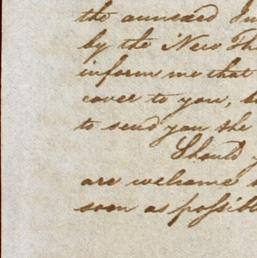 the annexed In
by the New Th
inform me that
cover to you, b
to send you the
Should y
are welcome
soon as possibl